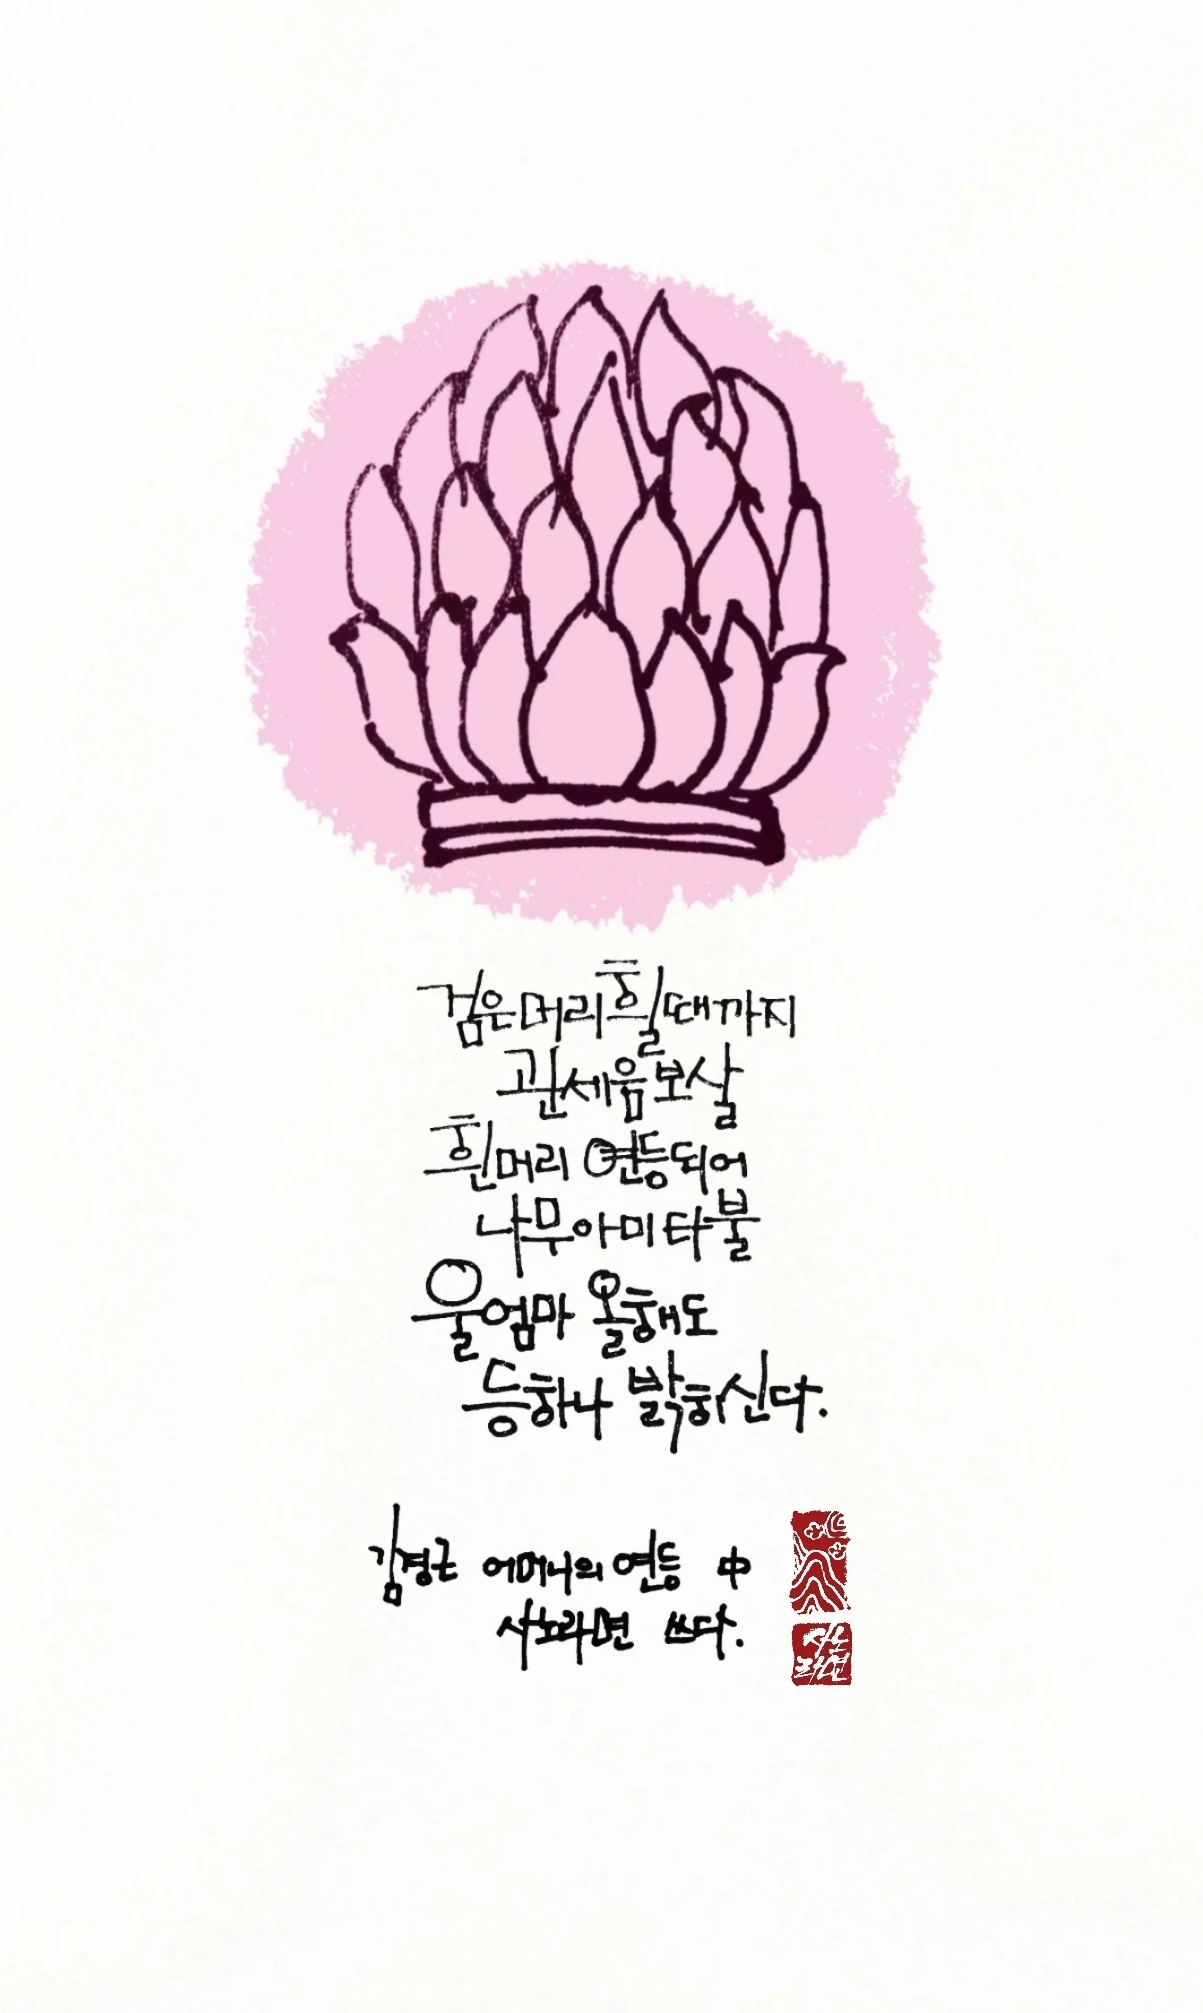 검은머리 흴때까지
관세음보살
흰머리 연등되어
나무아미타불
울엄마 올해도
등하나 밝히신다.
김경근 어머니의 연등 中
사노라면 쓰다.
사노
라면